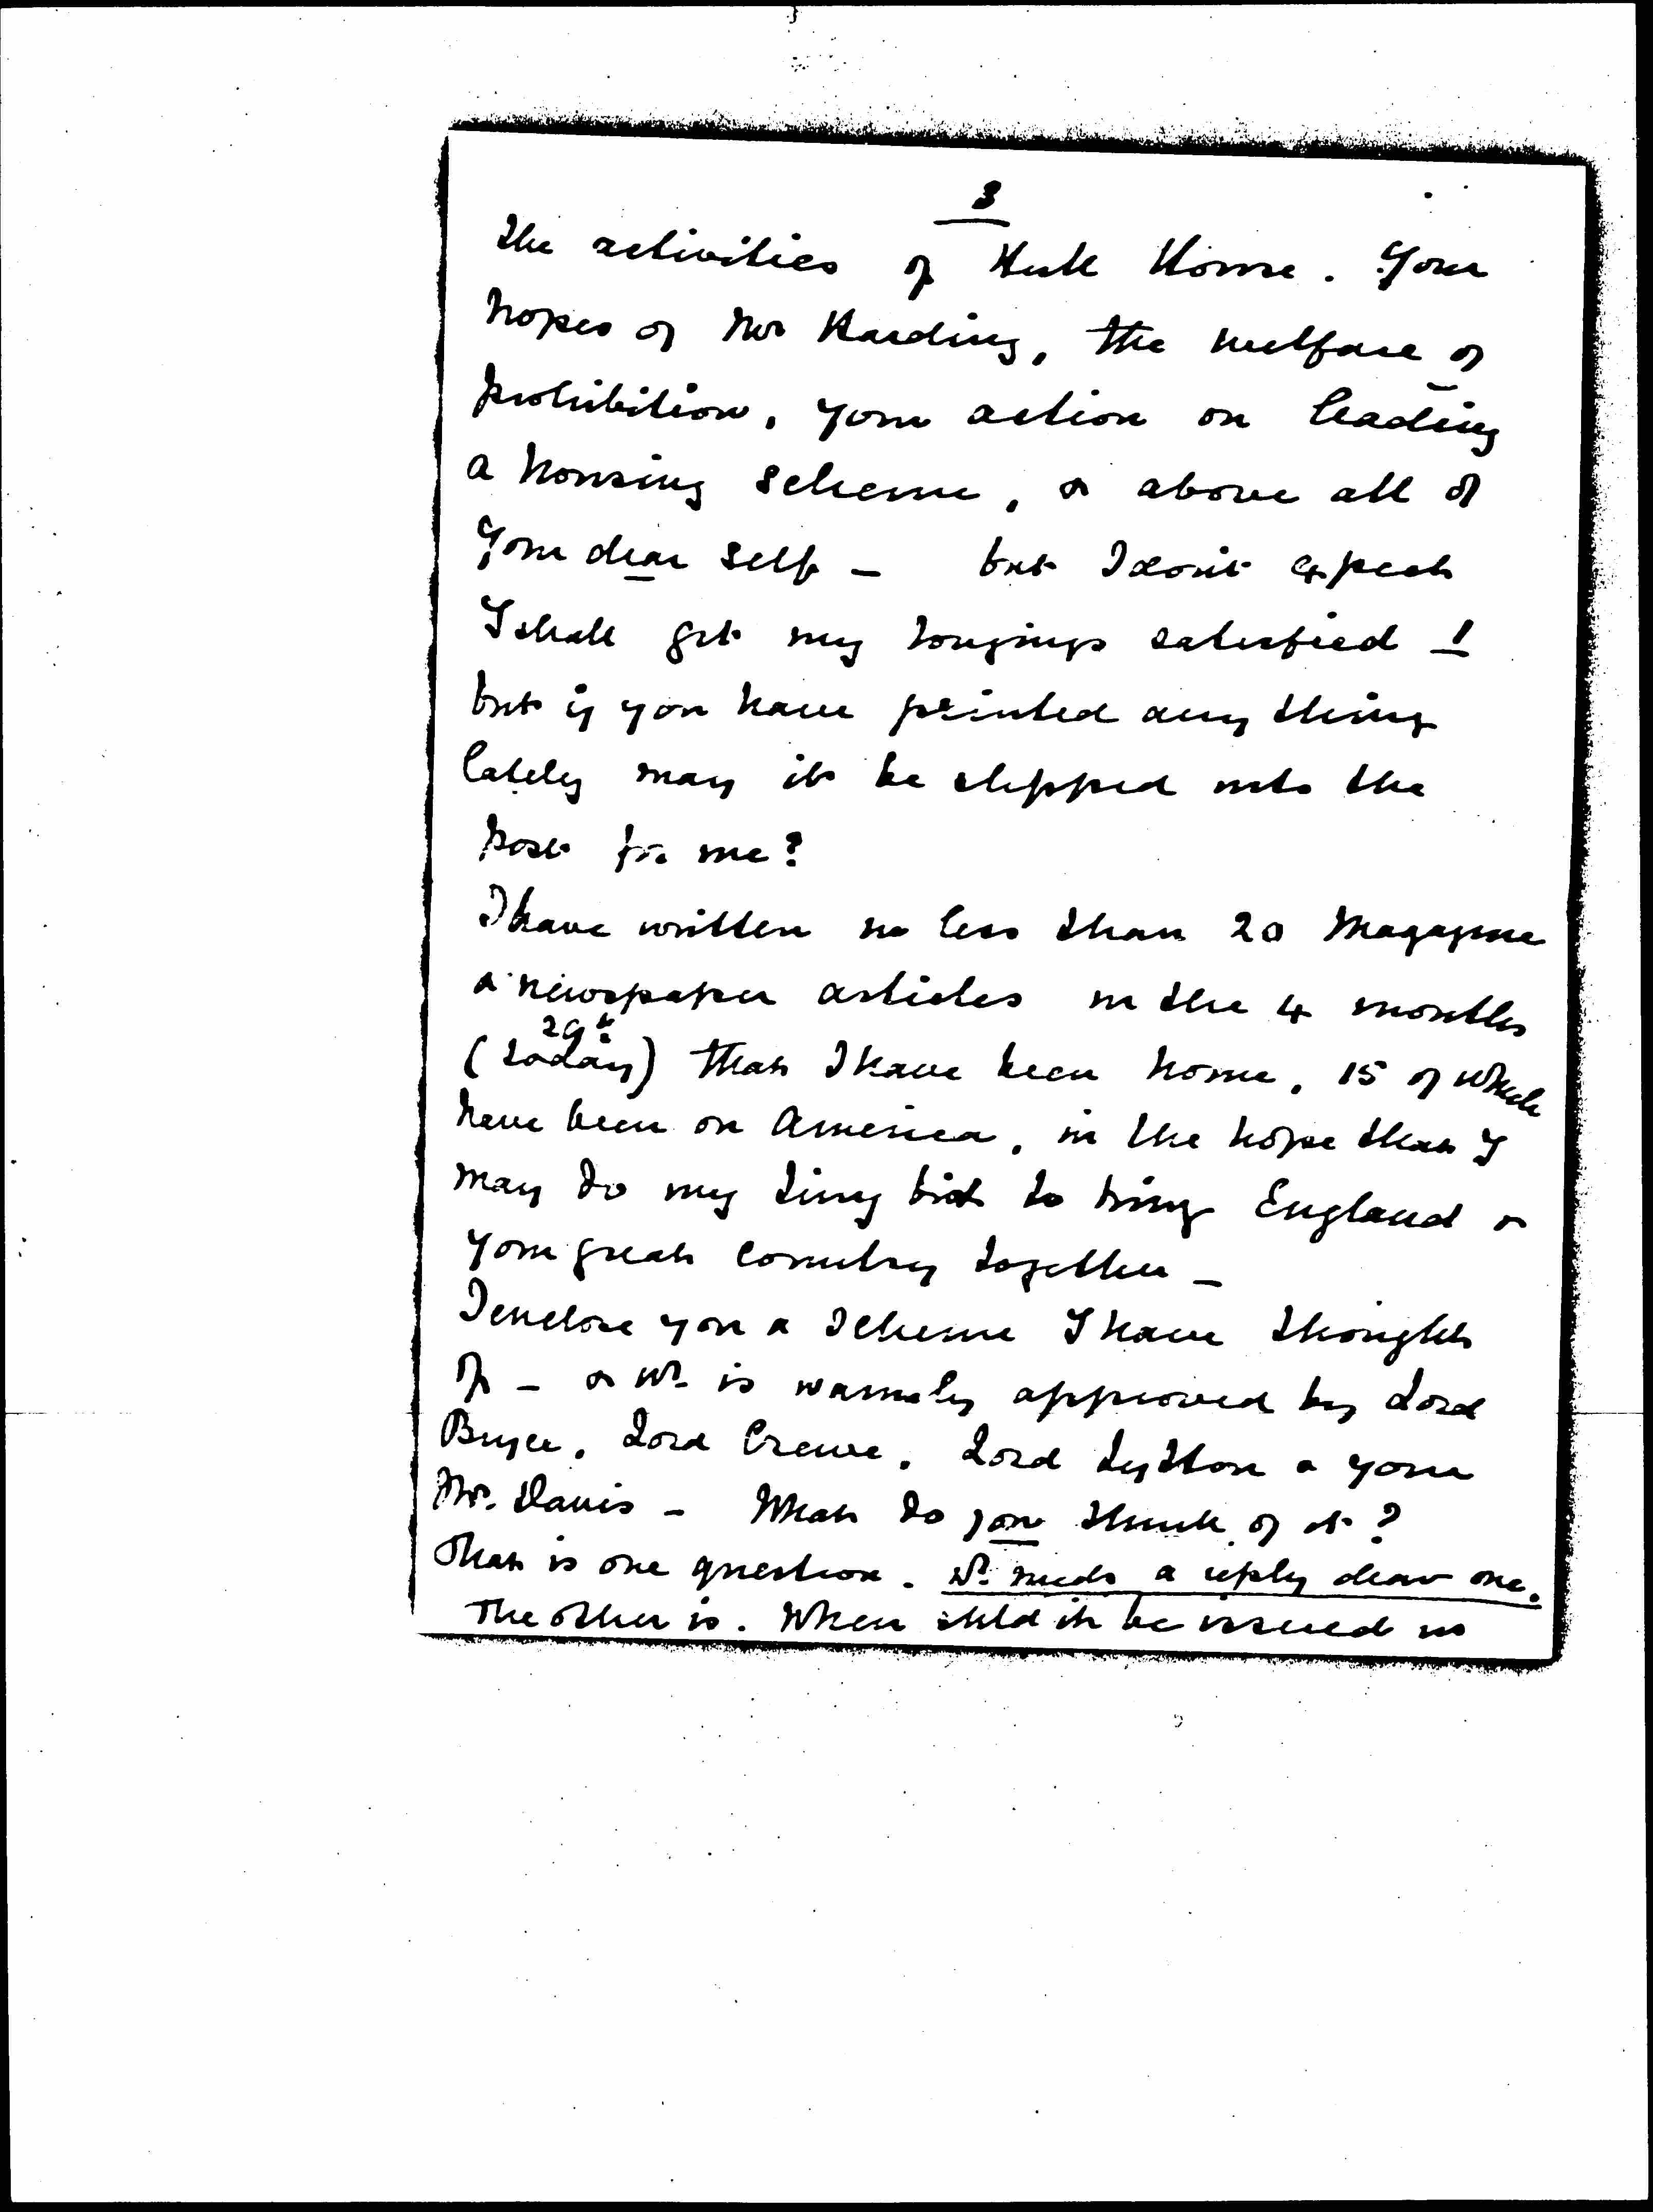 3
the activities of Hull House. Your
hopes of Mr Harding, the welfare of
prohibition, your action on leading
a housing scheme, & above all of
Your dear self – but I don't expect
I shall get my longings satisfied !
but if you have printed any thing
lately may it be slipped into the
post for me?
I have written no less than 20 Magazine
& newspaper articles in the 4 months
29th
(today) that I have been home, 15 of which
have been on America, in the hope that I
may do my tiny bit to bring England &
your great country together –
I enclose you a scheme I have thought
of – & wh is warmly approved by Lord
Bryce, Lord Crewe, Lord Lytton & your
Mr. Davis – What do you think of it?
That is one question. wh needs a reply dear one.
The other is. When shld it be issued in